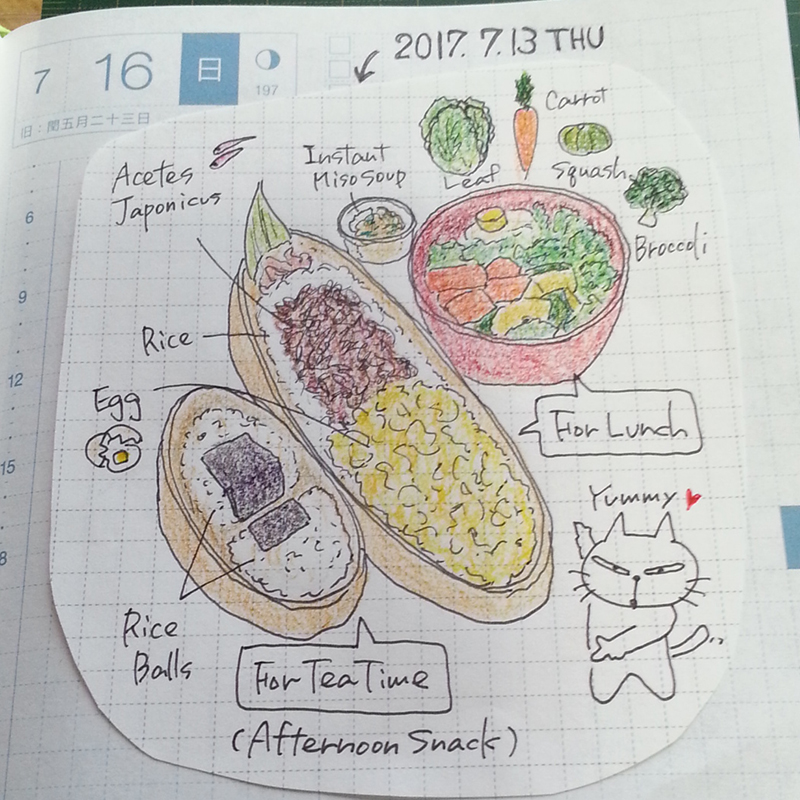 2017. 7.13 THU
7 16 日
197
旧：閏五月二十三日
Acetes
Japonicus
Instant
Miso Soup
Leaf
Carrot
Squash
Broccoli
6
9
Rice
12
Egg
For Lunch
15
Yummy
8
Rice
Balls
For Tea Time
(Afternoon Snack)